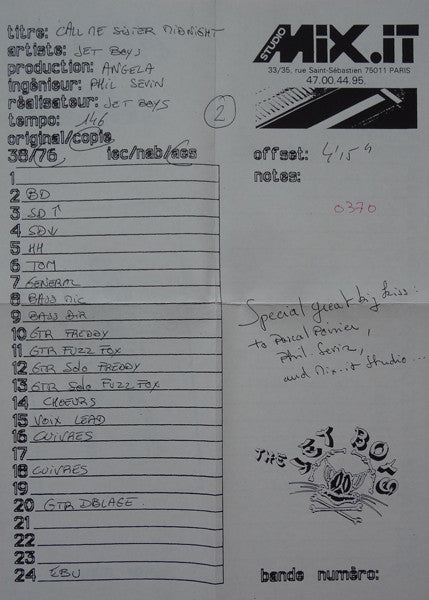 titre: CALL ME SISTER MIDNIGHT
artiste: JET BOYS
production: ANGELA
ingénieur: PHIL SEVIN
réalisateur: JET BOYS
tempo: 146
original/copie
38/76 iec/nab/aes
2
STUDIO MIX.IT
33/35, rue Saint-Sébastien 75011 PARIS
47.00.44.95
offset: 4'15"
notes:
0370
1
2 BD
3 SD↑
4 SD↓
5 HH
6 TOM
7 GENERAL
8 BASS MIC
9 BASS DIR
10 GTR FREDDY
11 GTR FUZZ FOX
12 GTR Solo FREDDY
13 GTR Solo FUZZ FOX
14 CHOEURS
15 VOIX LEAD
16 CUIVRES
17
18 CUIVRES
19
20 GTR DBLAGE
21
22
23
24 EBU
Special great big kiss:
to Pascal
Phil. Sevin,
and Mix-it Studio...
THE JET BOYS
bande numéro: